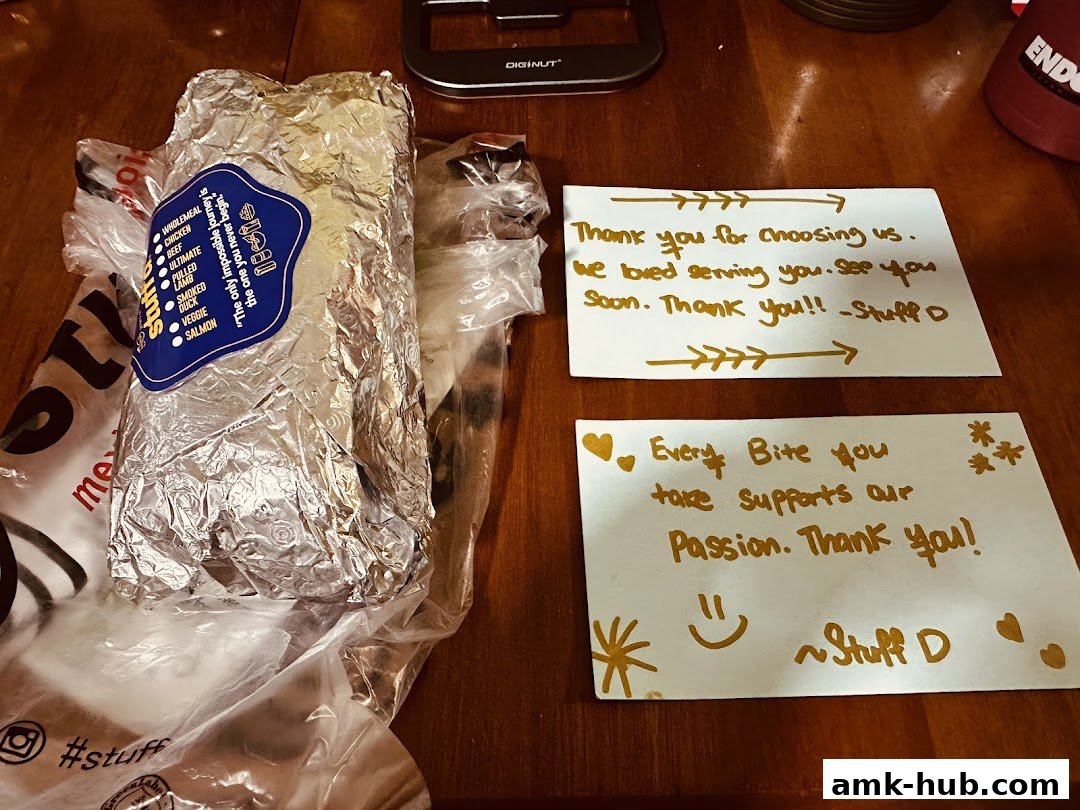 DIGINUT
WHOLEMEAL
CHICKEN
BEEF
ULTIMATE
PULLED
LAMB
SMOKED
DUCK
VEGGIE
SALMON
"The only impossible journey is
the one you never begin."
Thank you for choosing us.
We loved serving you. See you
soon. Thank you!! -Stuff D
Every Bite you
take supports our
Passion. Thank you!
~Stuff D
#stuff
amk-hub.com